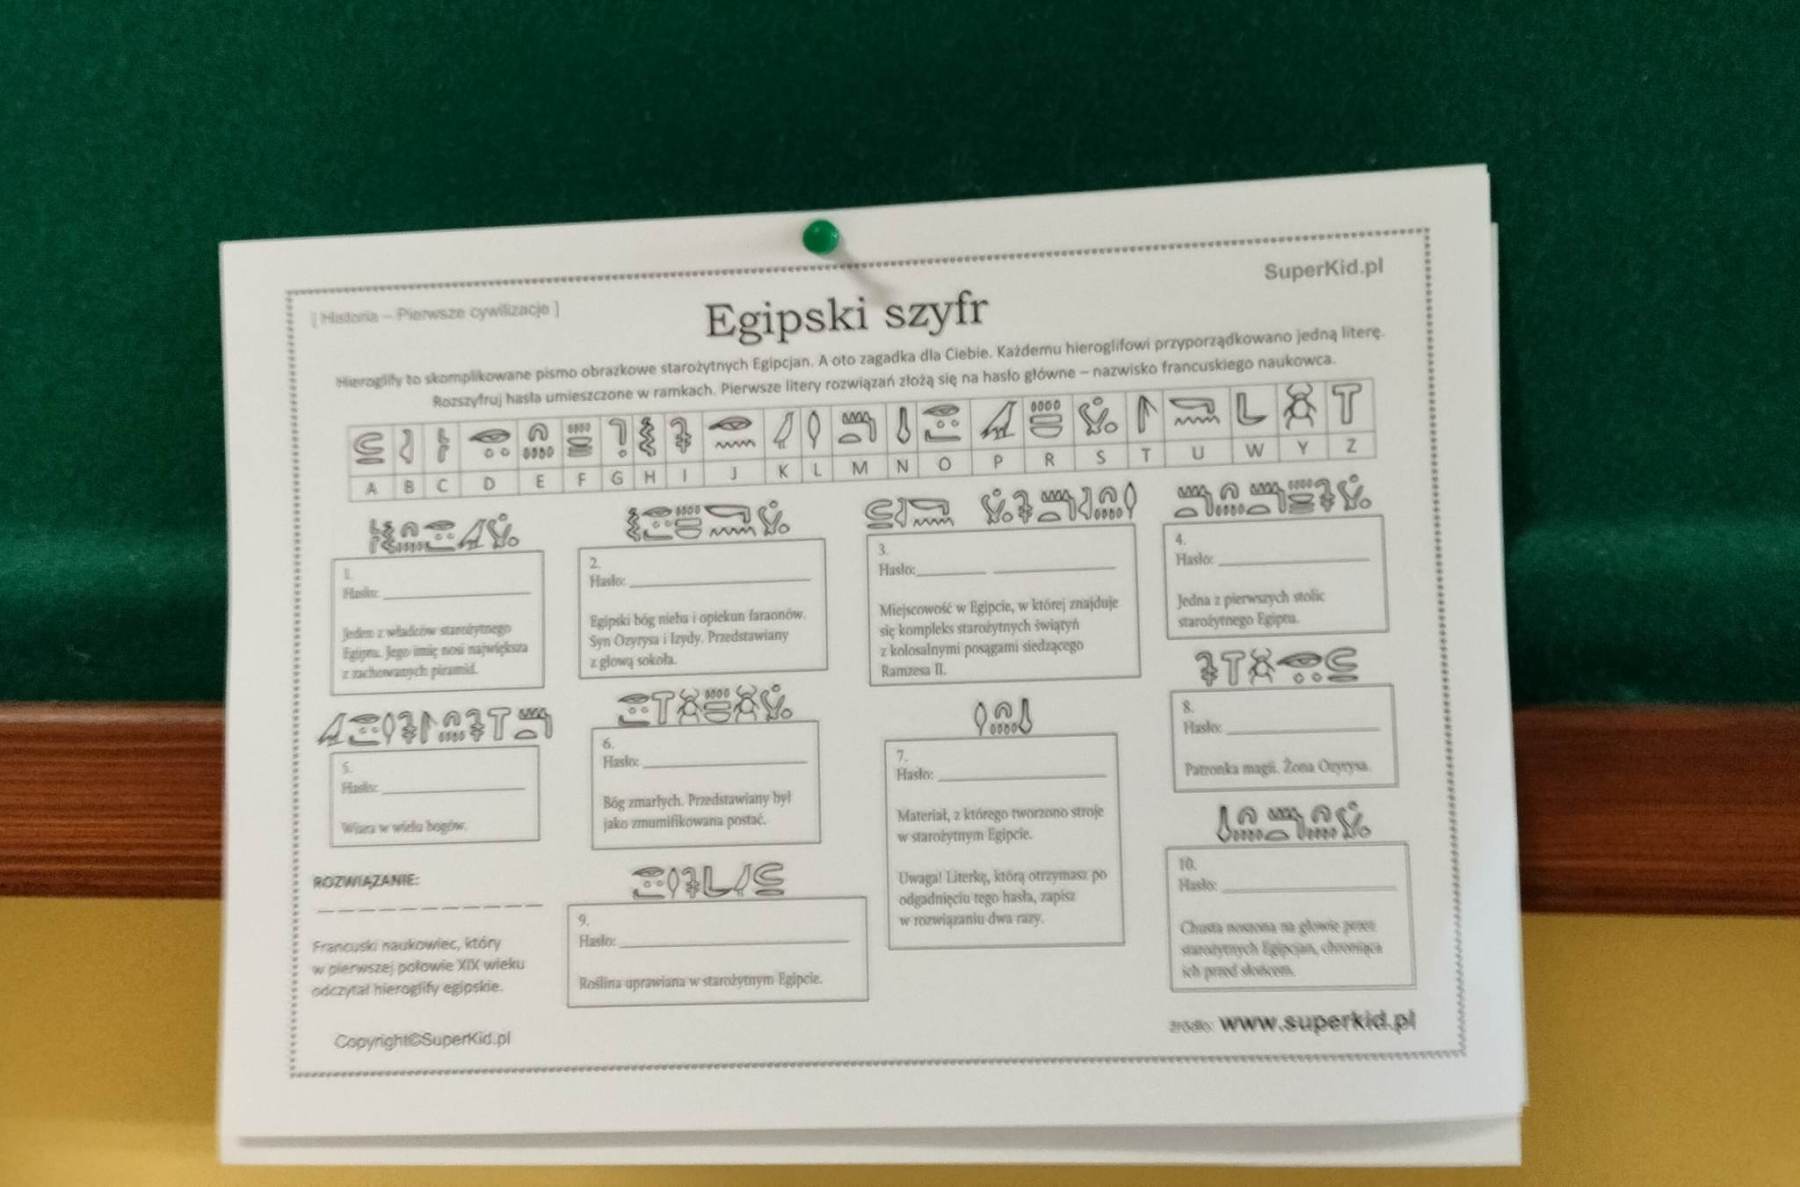 [ Historia – Pierwsze cywilizacje ]
SuperKid.pl
Egipski szyfr
Hieroglify to skomplikowane pismo obrazkowe starożytnych Egipcjan. A oto zagadka dla Ciebie. Każdemu hieroglifowi przyporządkowano jedną literę.
Rozszyfruj hasła umieszczone w ramkach. Pierwsze litery rozwiązań złożą się na hasło główne – nazwisko francuskiego naukowca.
A B C D E F G H I J K L M N O P R S T U W Y Z
1.
Hasło:
Jeden z władców starożytnego
Egiptu. Jego imię nosi największa
z zachowanych piramid.
2.
Hasło:
Egipski bóg nieba i opiekun faraonów.
Syn Ozyrysa i Izydy. Przedstawiany
z głową sokoła.
3.
Hasło:
Miejscowość w Egipcie, w której znajduje
się kompleks starożytnych świątyń
z kolosalnymi posągami siedzącego
Ramzesa II.
4.
Hasło:
Jedna z pierwszych stolic
starożytnego Egiptu.
5.
Hasło:
Wiara w wielu bogów.
6.
Hasło:
Bóg zmarłych. Przedstawiany był
jako zmumifikowana postać.
7.
Hasło:
Materiał, z którego tworzono stroje
w starożytnym Egipcie.
Uwaga! Literkę, którą otrzymasz po
odgadnięciu tego hasła, zapisz
w rozwiązaniu dwa razy.
8.
Hasło:
Patronka magii. Żona Ozyrysa.
ROZWIĄZANIE:
Francuski naukowiec, który
w pierwszej połowie XIX wieku
odczytał hieroglify egipskie.
9.
Hasło:
Roślina uprawiana w starożytnym Egipcie.
10.
Hasło:
Chusta noszona na głowie przez
starożytnych Egipcjan, chroniąca
ich przed słońcem.
Copyright©SuperKid.pl
źródło: www.superkid.pl